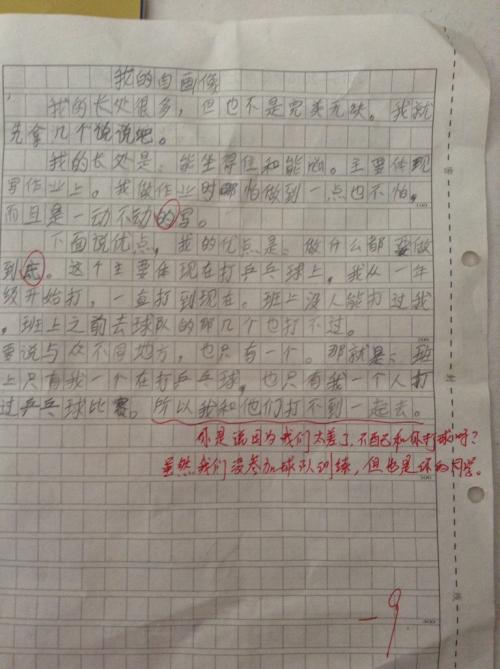 我的自画像
我的长处很多，但也不是完美无缺。我就
先拿几个说说吧。
我的长处是：能坐得住和能。主要体现
写作业上。我做作业时哪怕做到一点也不怕，
而且是一动不动的写。
下面说优点，我的优点是：做什么都要做
到底。这个主要体现在打乒乓球上，我从一年
级开始打，一直打到现在。班上没人能打过我
，班上之前去球队的那几个也打不过。
要说与众不同地方，也只有一个。那就是：班
上只有我一个在打乒乓球，也只有我一个人打
过乒乓球比赛。所以我和他们打不到一起去。
你是说因为我们太差了，不配和你打球吗？
虽然我们没参加球队训练，但也是你的同学。